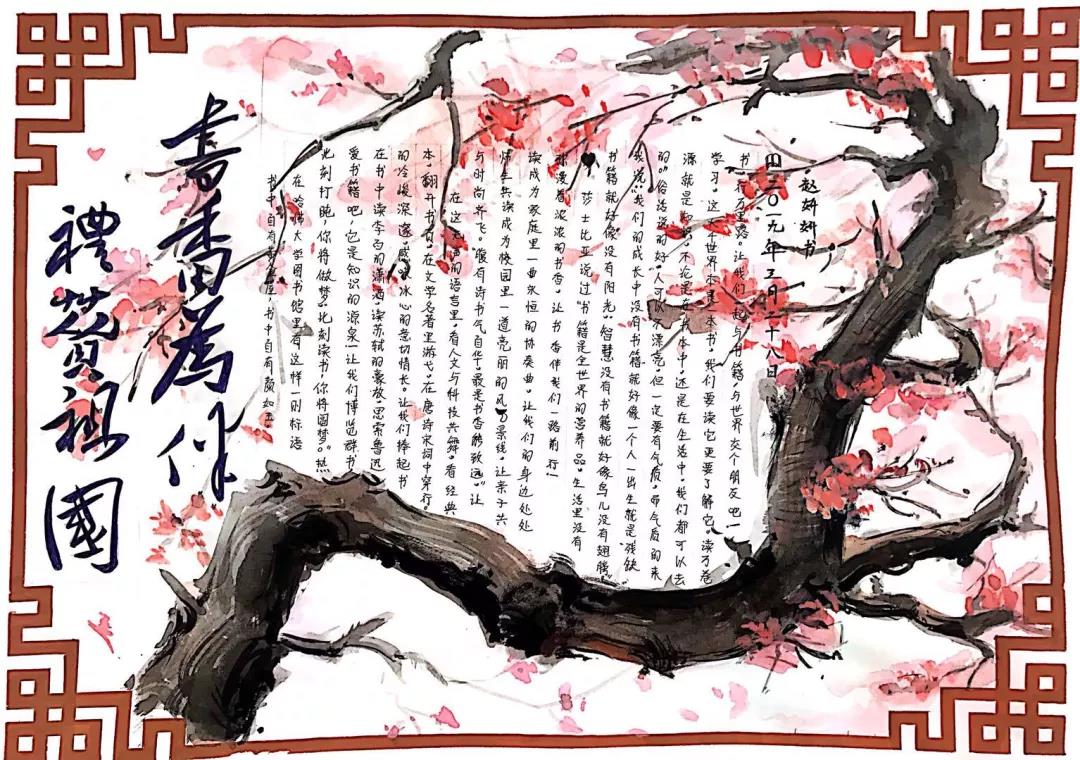 書香為伴
禮贊祖國
书中自有黄金屋,书中自有颜如玉
在哈佛大学图书馆里有这样一则标语
此刻打盹,你将做梦。此刻读书,你将圆梦。热
爱书籍吧,它是知识的源泉!让我们博览群书
在书中读李白的潇洒,读苏轼的豪放,思索鲁迅
的冷峻深邃,感 冰心的意切情长。让我们捧起书
本,翻开书页,在文学名著里游弋,在唐诗宋词中穿行。
在这无声的语言里,看人文与科技共舞,看经典
与时尚齐飞。腹有诗书气自华,最是书香能致远。让
师生共读成为校园里一道亮丽的风景线,让亲子共
读成为家庭里一曲永恒的协奏曲。让我们的身边处处
弥漫着浓浓的书香,让书香伴我们一路前行!
莎士比亚说过"书籍是全世界的营养品。生活里没有
书籍就好像没有阳光,智慧没有书籍就好像鸟儿没有翅膀"
我说"我们的成长中没有书籍就好像一个人一出生就是残缺
的"俗话说的好"人可以不漂亮,但一定要有气质,而气质的来
源就是知识,不论是在书本中,还是在生活中,我们都可以去
学习。这个世界本是一本书,我们要读它更要了解它。读万卷
书,行万里路。让我们一起与书籍,与世界交个朋友吧!
二〇一九年三月二十八日
赵妍妍书